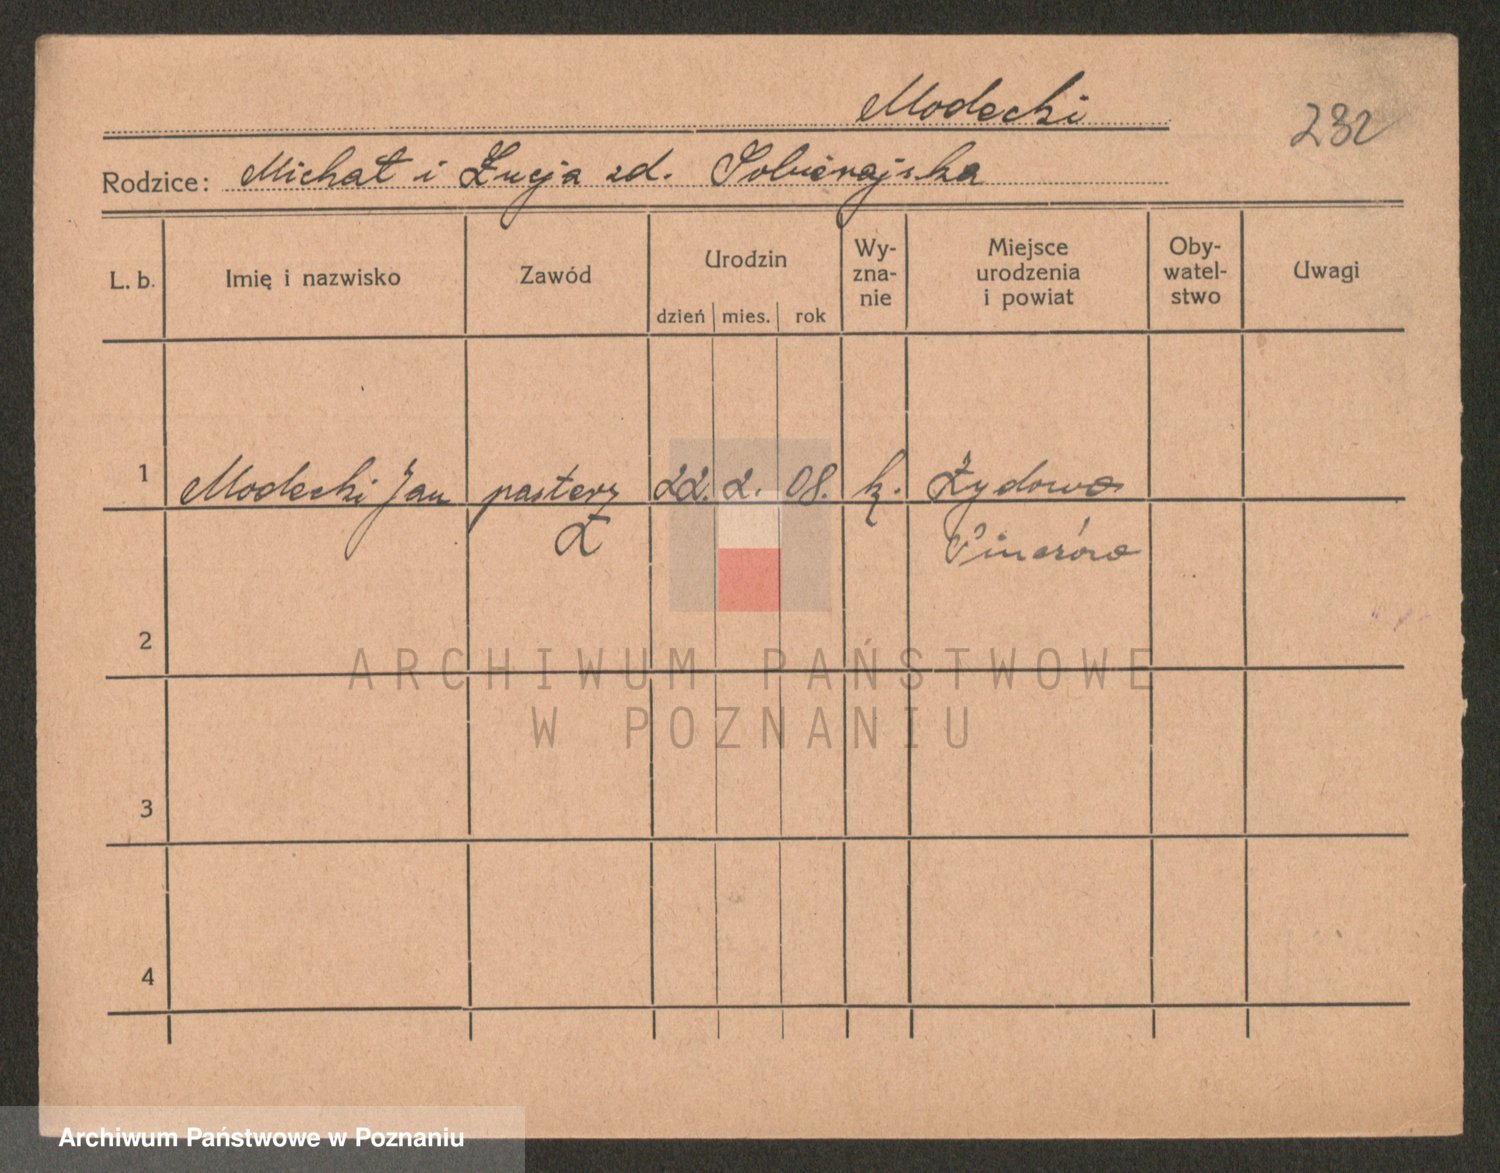 Modecki
232
Rodzice: Michał i Łucja zd. Sobierajska
L. b. Imię i nazwisko Zawód Urodzin dzień mies. rok Wy-zna-nie Miejsce urodzenia i powiat Oby-watel-stwo Uwagi
1 Modecki Jan pasterz 22. 2. 08. k. Żydowo
Ż
2
3
4
ARCHIWUM PAŃSTWOWE
W POZNANIU
Archiwum Państwowe w Poznaniu